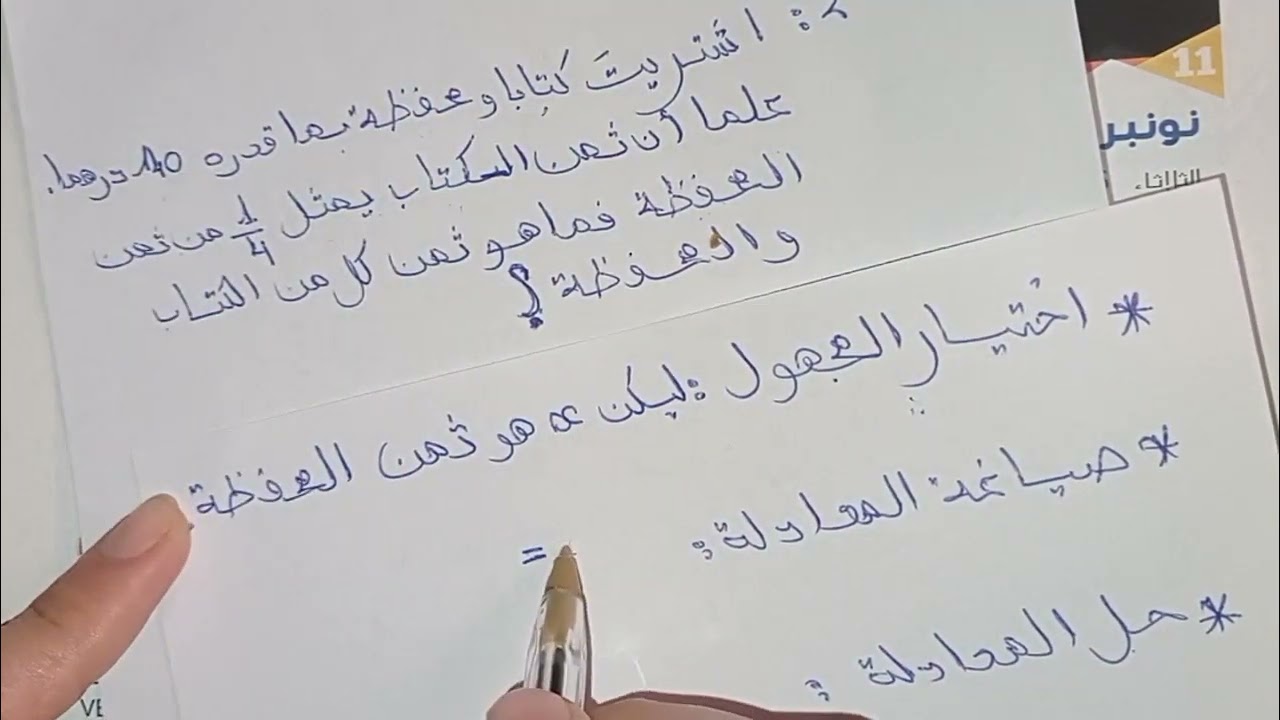 2: اشتريتَ كتابا و محفظة بما قدره 140 درهما.
علما أن ثمن الكتاب يمثل 1/4 من ثمن
المحفظة فما هو ثمن كل من الكتاب
و المحفظة ؟
* اختيار المجهول : ليكن x هو ثمن المحفظة
* صياغة المعادلة :
=
* حل المعادلة :
11
نونبر
الثلاثاء
VE